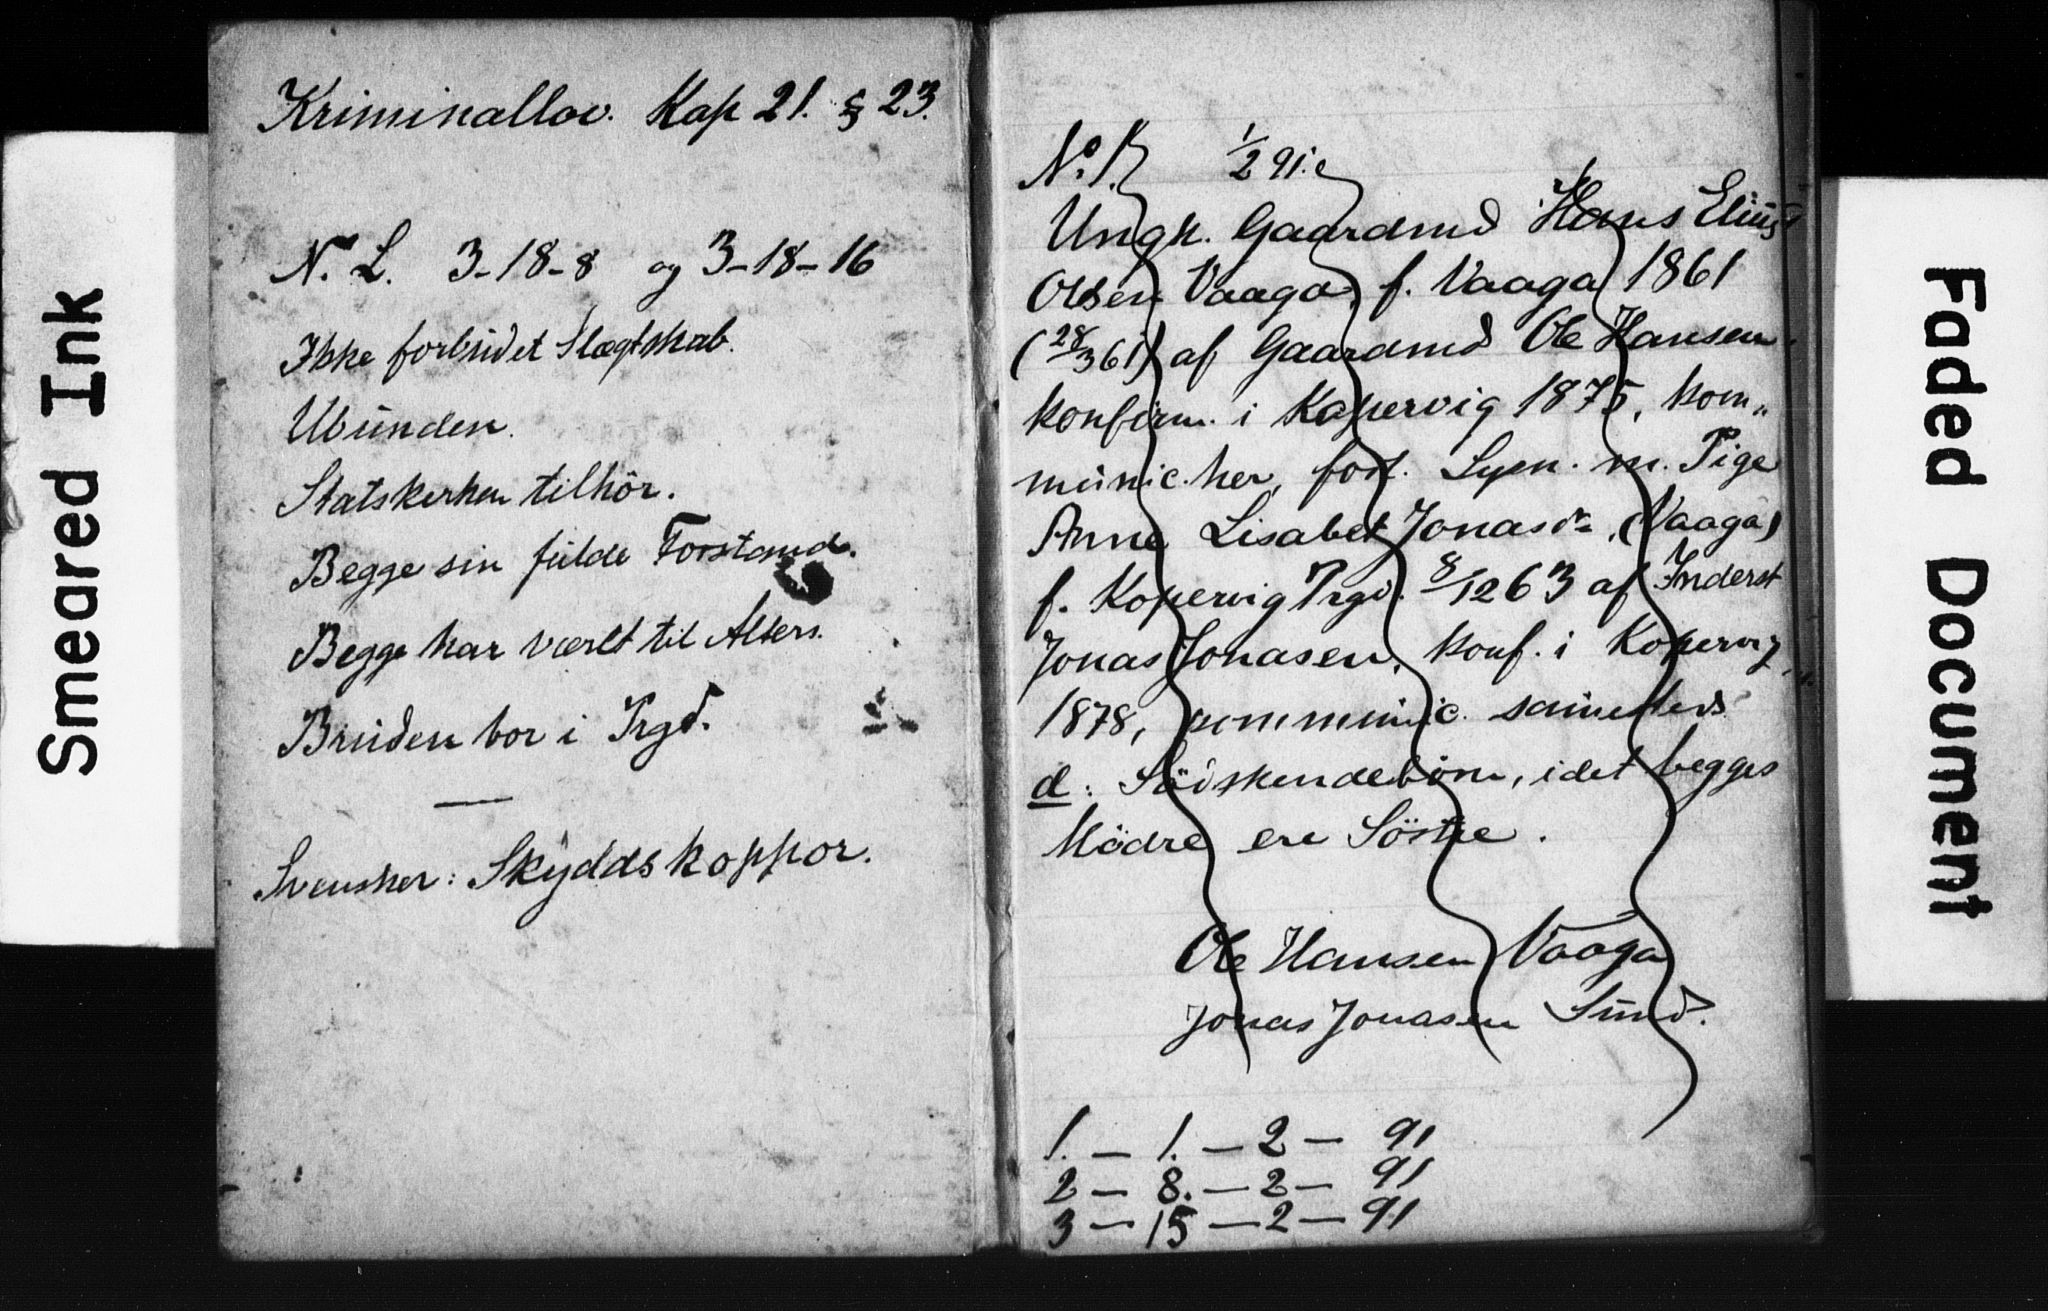 Smeared Ink
Kriminallov. Kap 21. § 23.
N. L. 3-18-8 og 3-18-16
Ikke forbudet Slægtskab.
Ubunden.
Statskirken tilhör.
Begge sin fulde Forstand.
Begge har været til Alters.
Bruden bor i Prgd.
Svensker: Skyddskoppor.
No. 1. 1/2 91.
Ungk. Gaardmd Hans Elius
Olsen Vaaga, f. Vaaga 1861
(28/3 61) af Gaardmd Ole Hansen,
konfirm. i Kopervig 1875, kom„
munic. her, forl. Sysn. m. Pige
Anne Lisabet Jonasdr. (Vaaga)
f. Kopervig Prgd. 8/12 63 af Inderst
Jonas Jonasen, konf. i Kopervig
1878, kommunic. sammesteds
d: Södskendebörn, idet begges
Mödre ere Söstre.
Ole Hansen Vaaga
Jonas Jonasen Sund.
1. — 1. — 2 — 91
2 — 8. — 2 — 91
3 — 15 — 2 — 91
Faded Document